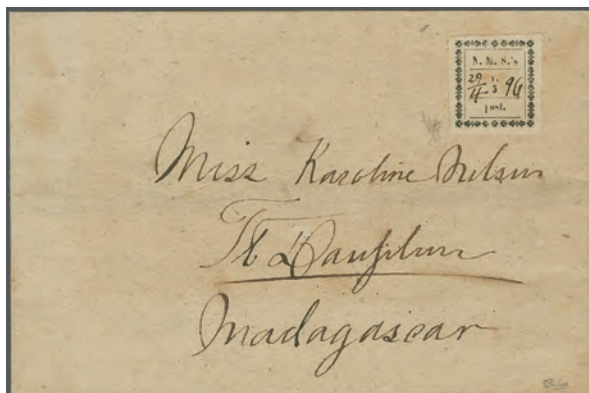 N. M. S.'s
29/4 V. 3 96
post.
Miss Karoline Nelsen
Ft Dauphin
Madagascar